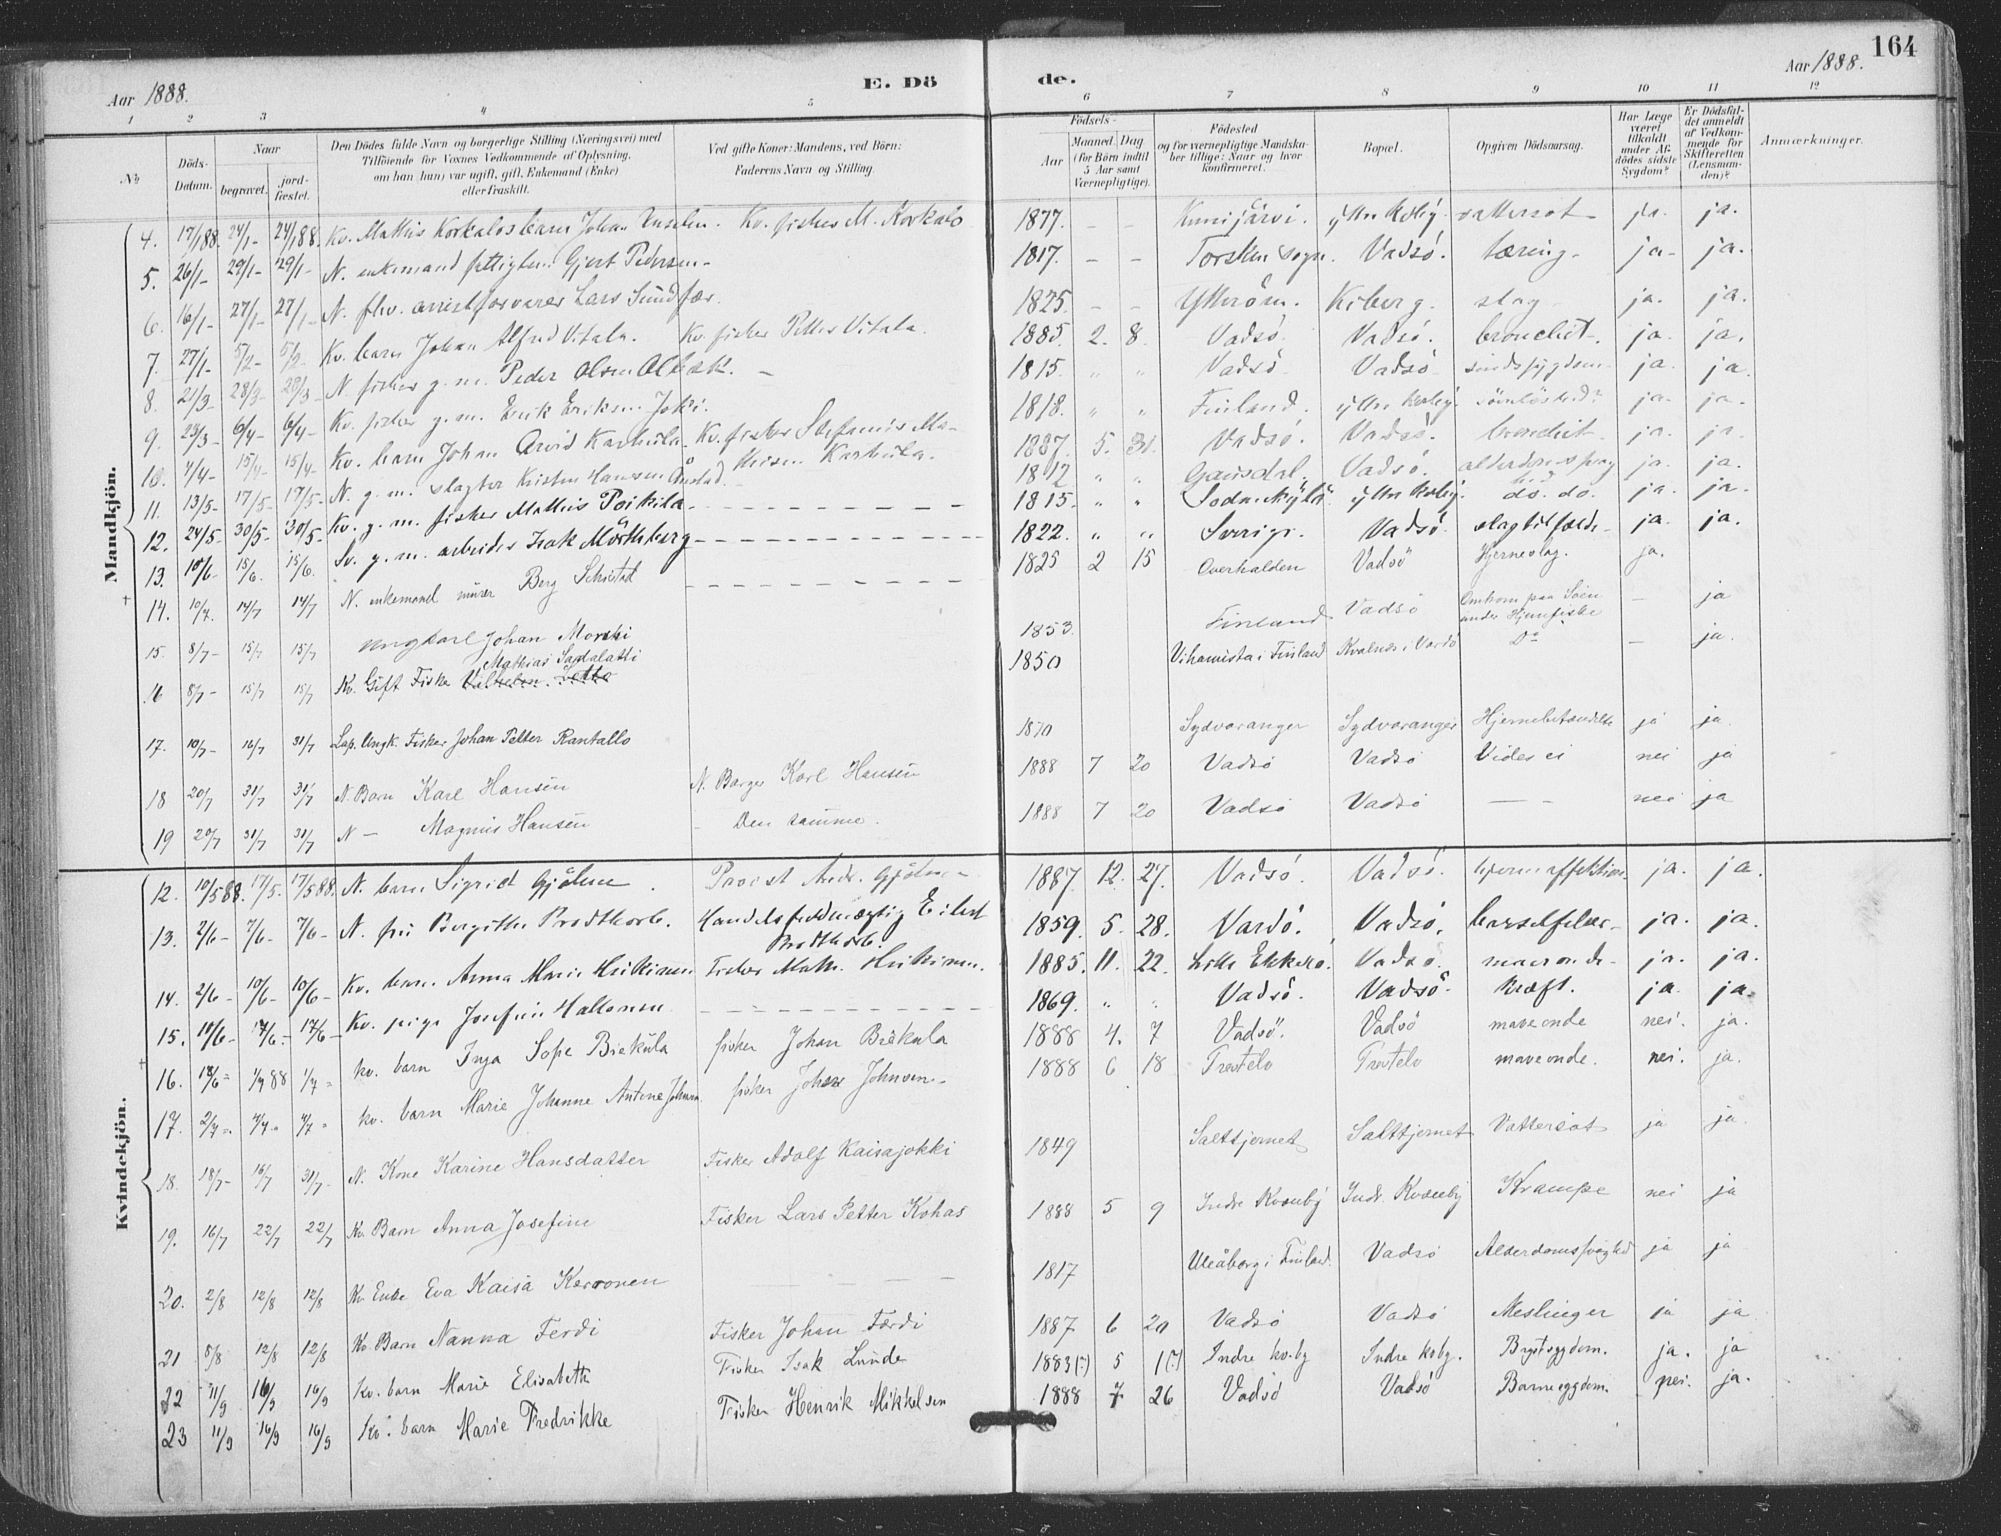 164
Aar 1888.
E. Dö
de.
Aar 1888.
1 2 3 4 5 6 7 8 9 10 11 12
No
Döds-Datum.
Naar
begravet.
jord-fæstet.
Den Dödes fulde Navn og borgerlige Stilling (Næringsvei) med
Tilföiende for Voxnes Vedkommende af Oplysning,
om han (hun) var ugift, gift, Enkemand (Enke)
eller fraskilt.
Ved gifte Koner: Mandens, ved Börn:
Faderens Navn og Stilling.
Födsels-
Aar
Maaned. Dag
(for Börn indtil
5 Aar samt
Værnepligtige).
Födested
og for værnepligtige Mandska-
ber tillige: Naar og hvor
konfirmeret.
Bopæl.
Opgiven Dödsaarsag.
Har Læge
været
tilkaldt
under Af-
dödes sidste
Sygdom?
Er Dödsfal-
det anmeldt
af Vedkom-
mende for
Skifteretten
(Lensman-
den)?
Anmærkninger.
Mandkjön.
4. 17/1 88 24/1- 24/1 88. Kv. Mathis Korkalos barn Johan Kv. fisker M. Korkalo 1877. - - Kemijärvi. ytre kvby. vattersot ja. ja.
5. 26/1- 29/1- 29/1- N. enkemand fattiglem Gjert Pedersen- 1817. - - Torsken sogn. Vadsö. tæring- ja- ja.
6. 16/1- 27/1- 27/1- N. fhv. arrestforvarer Lars Sundfær. 1825. - - Ytterøen. Kiberg. slag ja. ja.
7. 27/1- 5/2- 5/2- Kv. barn Johan Alfred Vitala. Kv. fisker Petter Vitala. 1885. 2. 8. Vadsö. Vadsö. bronchit. ja. ja.
8. 21/3- 28/3- 28/3- N. fisker g. m. Peder Olsen - 1815. " " Vadsö Vadsö ja. ja.
9. 23/3- 6/4- 6/4- Kv. fisker g. m. Erik Eriksen Joki. 1818. " " Finland. ytre kvby. ja. ja.
10. 7/4- 15/4- 15/4- Kv. barn Johan Arvid Karhula Kv. fisker Stefanus Ma-
thisen Karhula. 1887. 5. Vadsö. Vadsö. bronchit. ja. ja.
11. 13/5- 17/5- 17/5- N. g. m. slagter Kristen Hansen 1812 " " Gausdal. Vadsö. ja. ja.
12. 24/5- 30/5- 30/5- Kv. g. m. fisker Mathis Poikila - - - 1815. " " Sodankylä ytre kvby. do. do. ja. ja.
13. 10/6- 15/6. 15/6. Sv. g. m. arbeider Isak Mörtberg - - - 1822. " " Sverige. Vadsö. slagtilfælde- ja. ja.
14. 10/7. 14/7 14/7 N. enkemand murer Berg - - - 1825 2 15 Overhalden Vadsö Hjerneslag. ja.
15. 8/7- 15/7 15/7 Ungkarl Johan Morski 1853. Finland Vadsö Omkom paa Söen
under Hjemfiske - ja
16 8/7- 15/7 15/7 Kv. Gift Fisker Mathias 1850 i Finland Kvalnes i Vardö Do - ja.
17. 10/7- 16/7 31/7 Lap. Ungk. Fisker Johan Petter Rantallo 1870 Sydvaranger Sydvaranger Hjernebetændelse ja ja
18 20/7 31/7 31/7 N. Barn Karl Hansen N. Borger Karl Hansen 1888 7 20 Vadsö Vadsö Vides ei nei ja
19 20/7 31/7 31/7 N - Magnus Hansen - Den samme. 1888 7 20 Vadsö Vadsö - - nei ja
Kvindekjön.
12. 10/5 88. 17/5. 17/5 88. N. barn Sigrid Gjölme. Provst Andr. Gjölme 1887. 12. 27. Vadsö. Vadsö. hjerneaffektion. ja. ja.
13. 2/6- 7/6- 7/6- N. fru Bergithe Brodtkorb. Handelsfuldmægtig Eilert
Brodtkorb. 1859. 5. 28. Vardö. Vadsö. barselfeber- ja. ja.
14. 2/6- 10/6- 10/6- Kv. barn Anna Marie Heikinen Fisker Math. Heikinen. 1885. 11. 22. Lille Ekkerö. Vadsö. maveonde- ja. ja.
15. 10/6- 17/6- 17/6- Kv. pige Josefine Haltonen - - - 1869. " " Vadsö. Vadsö. kræft. ja. ja.
16. 1/7 88 1/7- kv. barn Inga Sofie Biekula fisker Johan Biekula 1888 4. 7 Vadsö. Vadsö maveonde nei. ja.
17. 2/7-. kv. barn Marie Johanne Antone Johnsen fisker Johan Johnsen- 1888 6 18 maveonde. nei. ja.
18. 13/7- 16/7 31/7- N. Kone Karine Hansdatter Fisker Adolf Kaisajokki 1849 Salttjernet Salttjernet Vattersot ja ja.
19. 16/7 22/7 22/7 Kv. Barn Anna Josefine Fisker Lars Petter Kohas 1888 5 9 Indre Kvænby Indr. Kvænby Krampe nei ja
20. 2/8 12/8 12/8 Kv. Enke Eva Kaisa Kerronen - - - 1817 Uleåborg i Finland. Vadsö Alderdomssvaghed ja ja
21 5/8 12/8 12/8 Kv. Barn Nanna Ferdi Fisker Johan Færdi 1887 6 20 Vadsö Vadsö Meslinger ja ja
22 11/9 16/9 16/9 kv. barn Marie Elisabeth Fisker Isak Lunde 1883(?) 5 1(?) Indre kv.by Indre kvby. Brystsygdom. ja. ja
23 11/9 16/9 16/9 Kv. barn Marie Fredrikke Fisker Henrik Mikkelsen 1888 7 26 Vadsö Vadsö Barnesygdom. nei. ja.